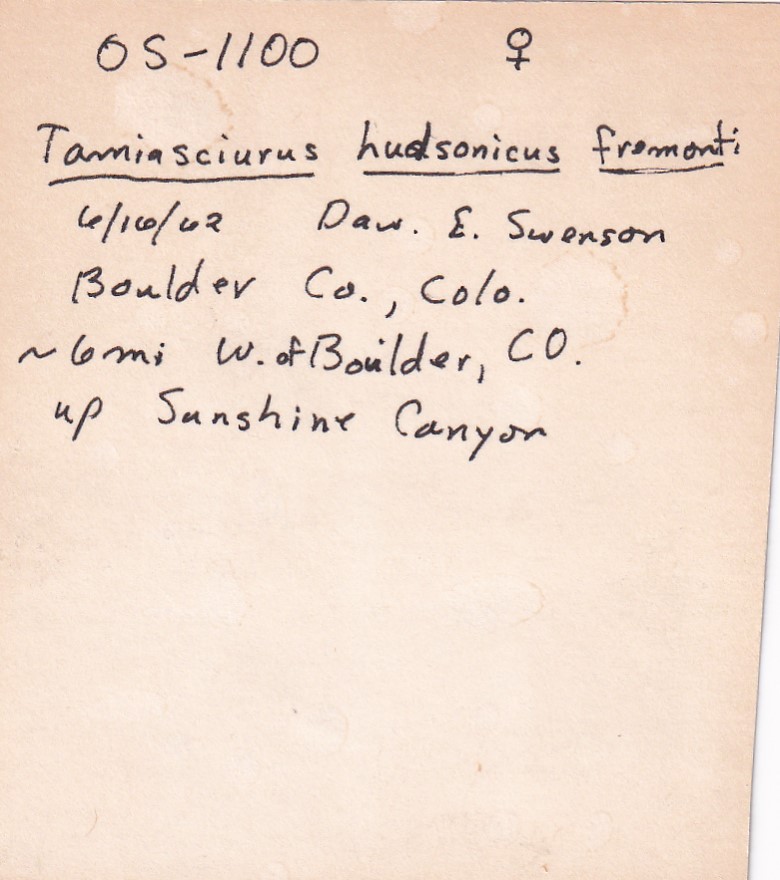 OS-1100 ♀
Tamiasciurus hudsonicus fremonti
6/16/62 Daw. E. Swenson
Boulder Co., Colo.
~6mi W. of Boulder, CO.
up Sunshine Canyon